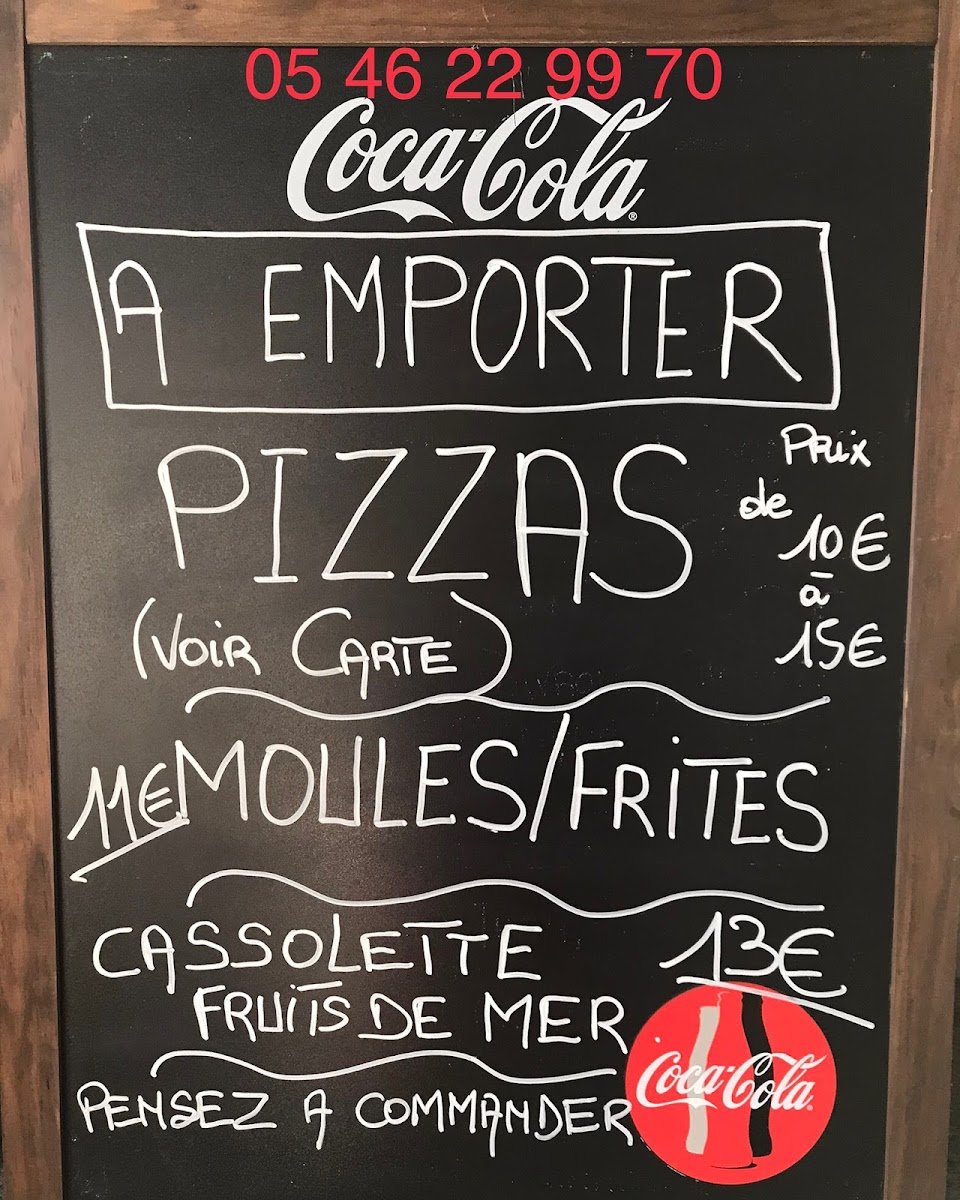 05 46 22 99 70
Coca-Cola
A EMPORTER
PIZZAS
Prix
de
10€
à
15€
(VOIR CARTE)
11€ MOULES/FRITES
CASSOLETTE 13€
FRUITS DE MER
Coca-Cola
PENSEZ A COMMANDER